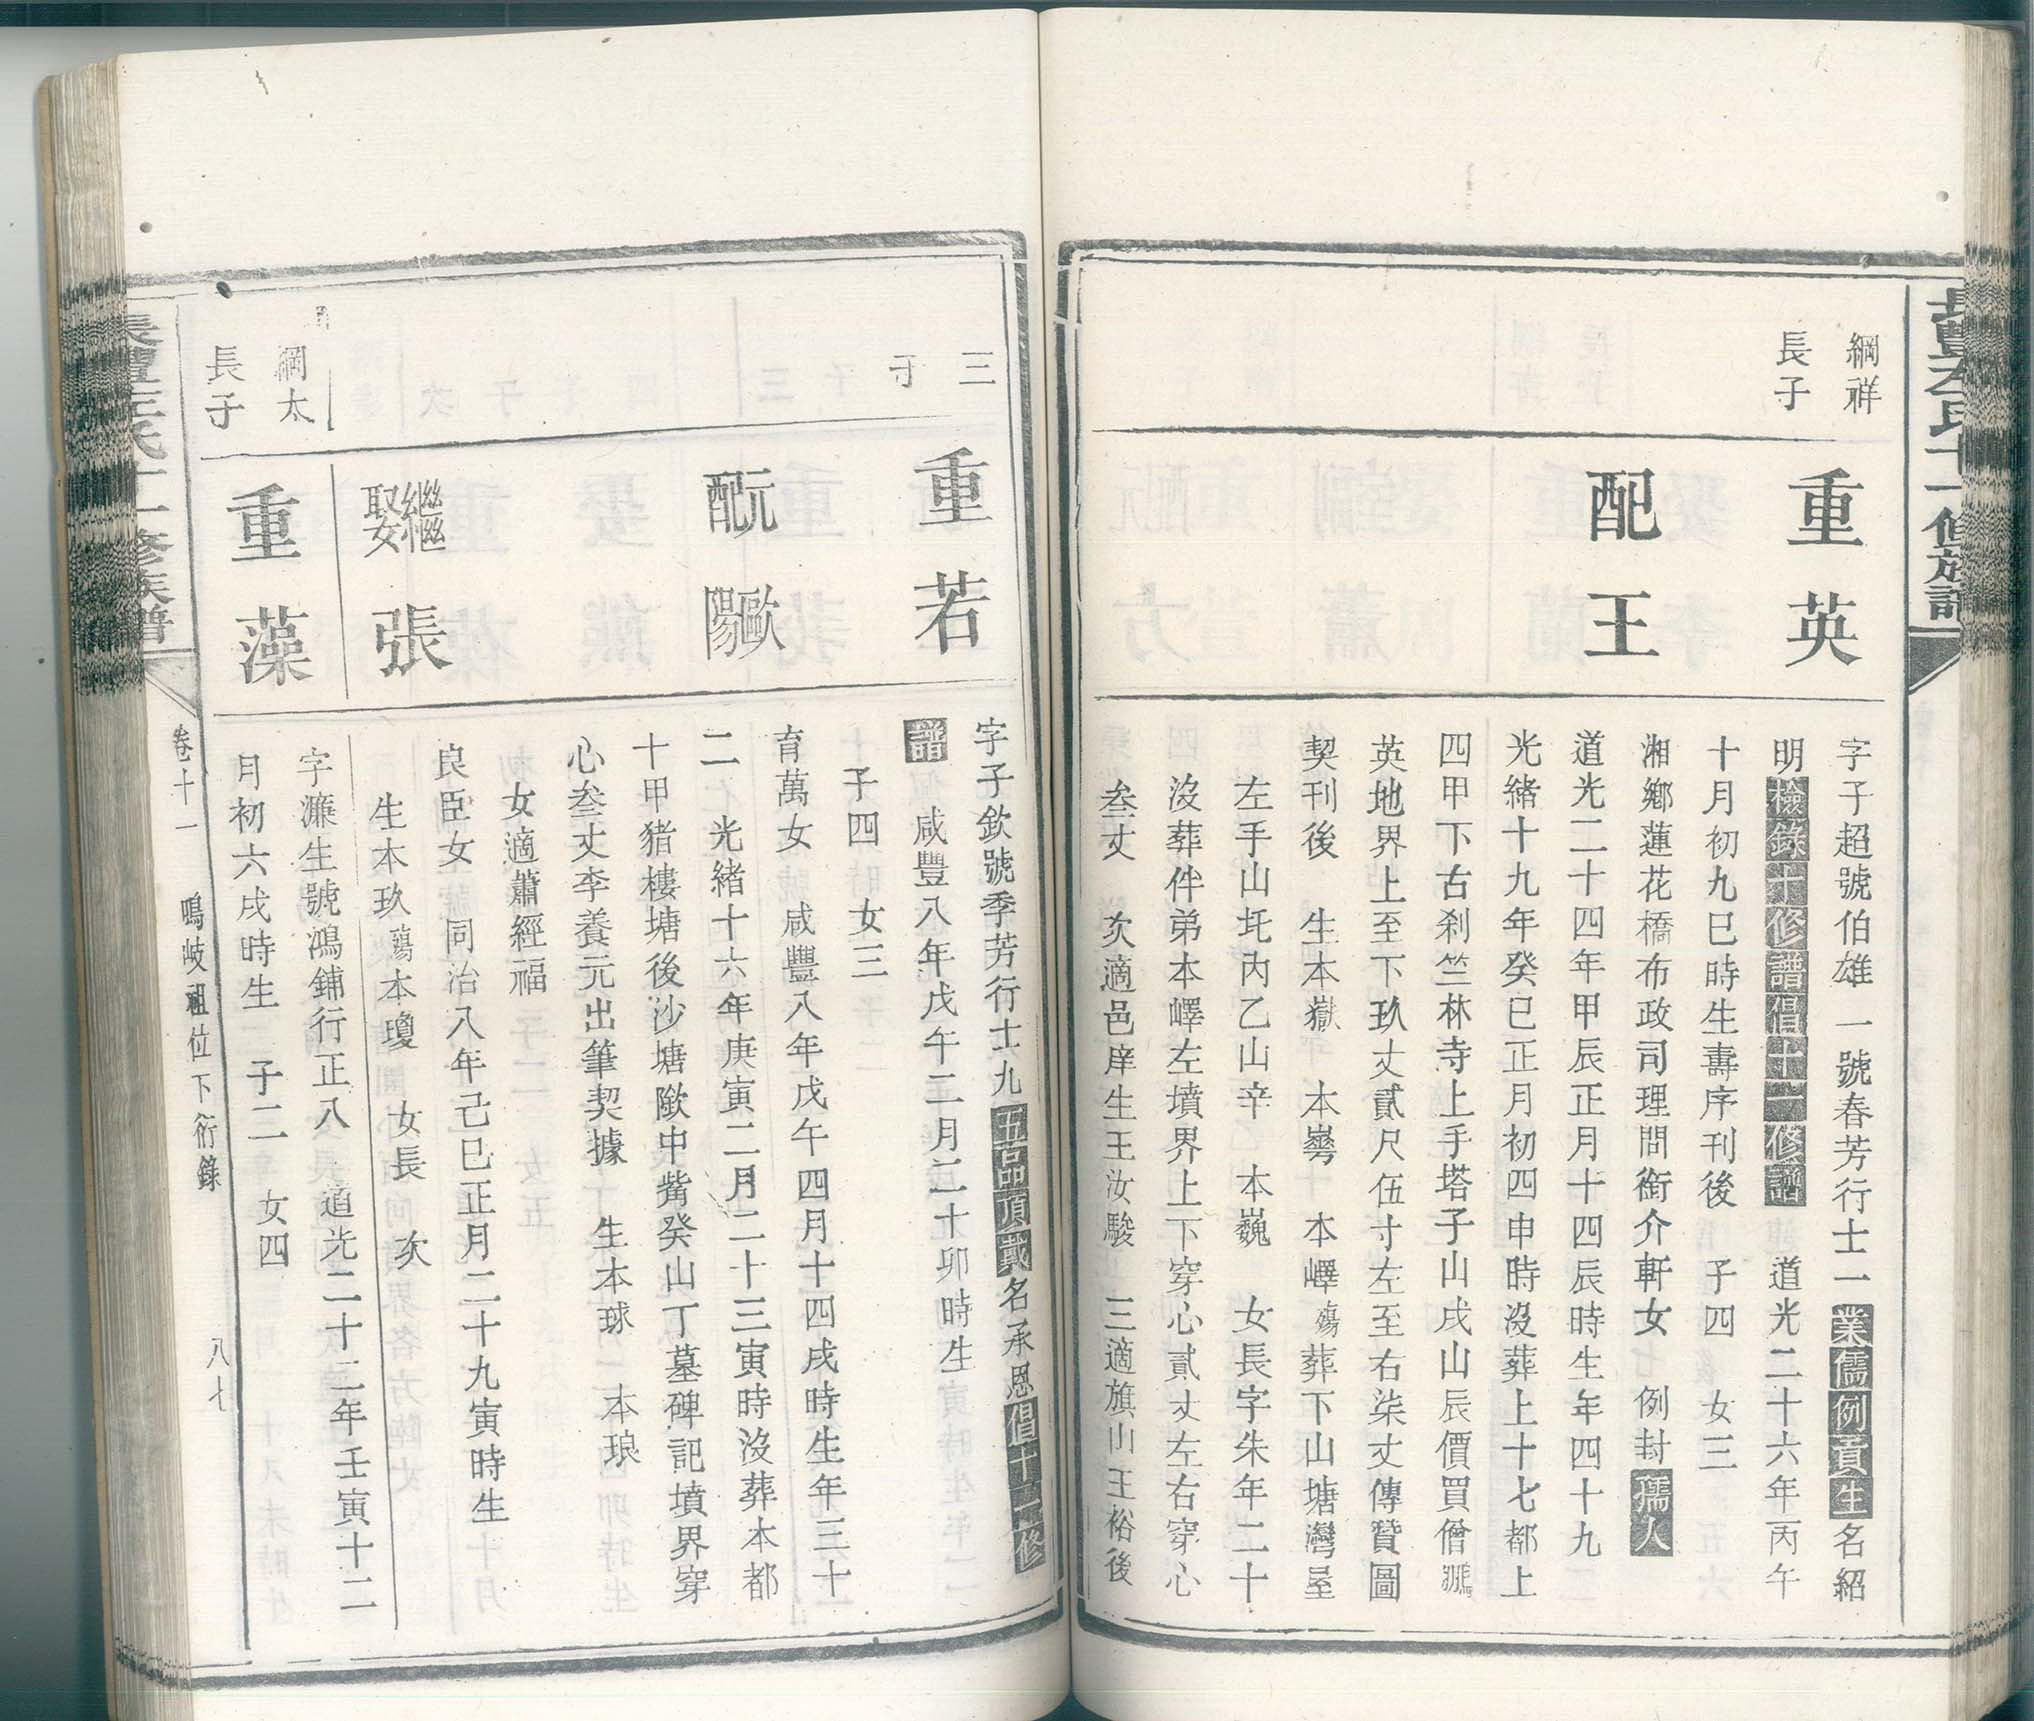 綱祥
長子
重英
配王
字子超號伯雄一號春芳行士一業儒例貢生名紹
明檢錄十修譜倡十一修譜　道光二十六年丙午
十月初九巳時生壽序刊後　子四　女三
湘鄉蓮花橋布政司理問銜介軒女　例封孺人
道光二十四年甲辰正月十四辰時生年四十九
光緒十九年癸巳正月初四申時沒葬上十七都上
四甲下古刹竺林寺上手塔子山戌山辰價買僧
英地界上至下玖丈貳尺伍寸左至右柒丈傳贊圖
契刊後　生本嶽　本崣　本嶧殤葬下山塘灣屋
左手山坉內乙山辛　本巍　女長字朱年二十
沒葬伴弟本嶧左墳界上下穿心貳丈左右穿心
叁丈　次適邑庠生王汝駿　三適旗山王裕後
三
子
重若
元配歐陽
繼娶張
字子欽號季芳行士九五品頂戴名承恩倡十一修
譜　咸豐八年戊午二月二十卯時生
子四　女三
育萬女　咸豐八年戊午四月十四戌時生年三十
二　光緒十六年庚寅二月二十三寅時沒葬本都
十甲猪樓塘後沙塘墘中觜癸山丁墓碑記墳界穿
心叁丈李養元出筆契據　生本球　本琅
女適蕭經福
良臣女　同治八年己巳正月二十九寅時生
生本玖殤本瓊　女長　次
綱太
長子
重藻
字濂生號鴻鋪行正八　道光二十二年壬寅十二
月初六戌時生　子二　女四
卷十一　鳴岐祖位下衍錄　八七